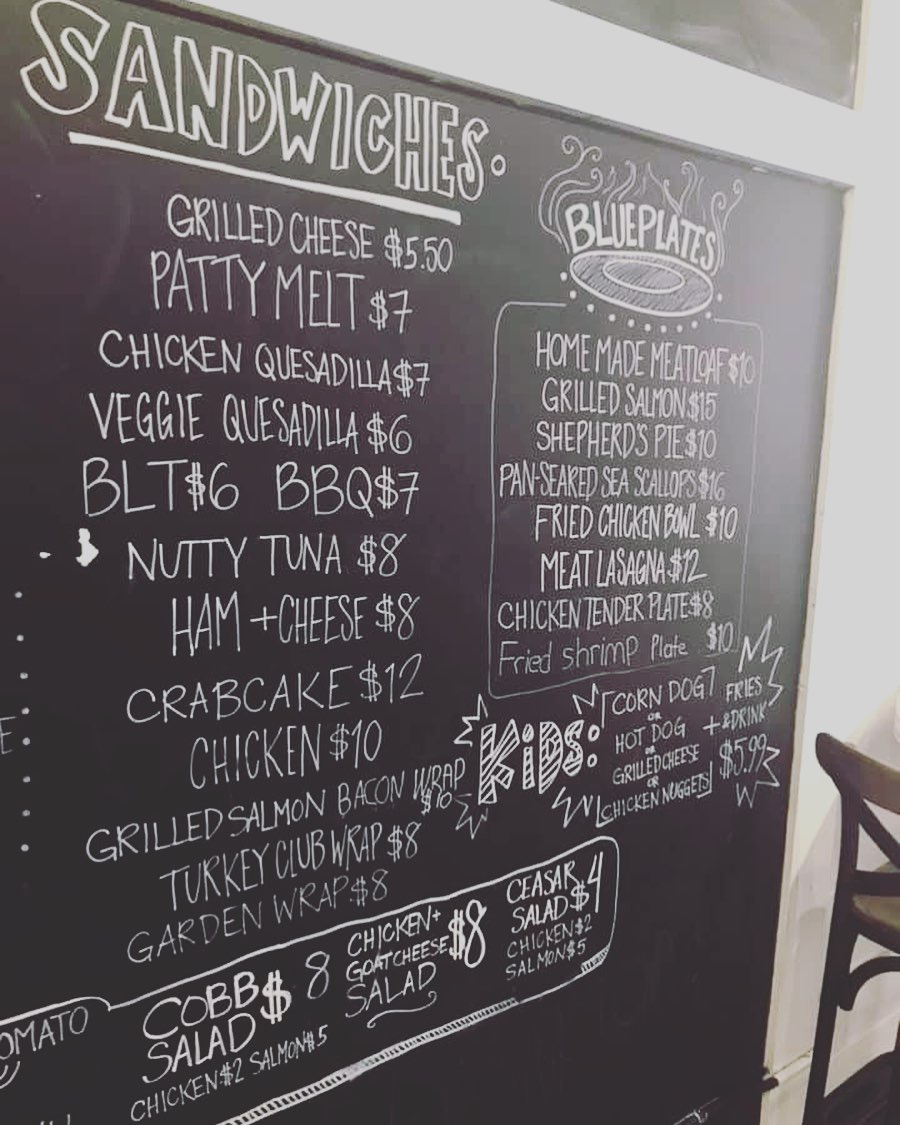 SANDWICHES.
GRILLED CHEESE $5.50
PATTY MELT $7
CHICKEN QUESADILLA $7
VEGGIE QUESADILLA $6
BLT $6 BBQ $7
NUTTY TUNA $8
HAM + CHEESE $8
CRABCAKE $12
CHICKEN $10
GRILLED SALMON BACON WRAP
$10
TURKEY CLUB WRAP $8
GARDEN WRAP $8
BLUEPLATES
HOME MADE MEATLOAF $10
GRILLED SALMON $15
SHEPHERD'S PIE $10
PAN-SEARED SEA SCALLOPS $16
FRIED CHICKEN BOWL $10
MEAT LASAGNA $12
CHICKEN TENDER PLATE $8
Fried shrimp Plate $10
KIDS:
CORN DOG
OR
HOT DOG
OR
GRILLED CHEESE
OR
CHICKEN NUGGETS
+ FRIES
& DRINK
$5.99
COBB
SALAD $8
CHICKEN $2 SALMON $5
CHICKEN +
GOAT CHEESE
SALAD $8
CEASAR
SALAD $4
CHICKEN $2
SALMON $5
OMATO
E